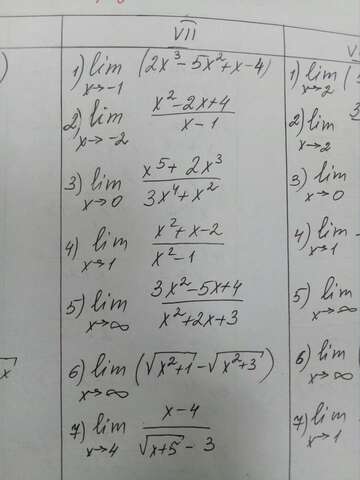 VII
1) lim x→-1 (2x³ - 5x² + x - 4)
2) lim x→-2 (x² - 2x + 4)/(x - 1)
3) lim x→0 (x⁵ + 2x³)/(3x⁴ + x²)
4) lim x→1 (x² + x - 2)/(x² - 1)
5) lim x→∞ (3x² - 5x + 4)/(x² + 2x + 3)
6) lim x→∞ (√(x²+1) - √(x²+3))
7) lim x→4 (x - 4)/(√(x+5) - 3)
1) lim x→2
2) lim x→2
3) lim x→0
4) lim x→1
5) lim x→∞
6) lim x→∞
7) lim x→1